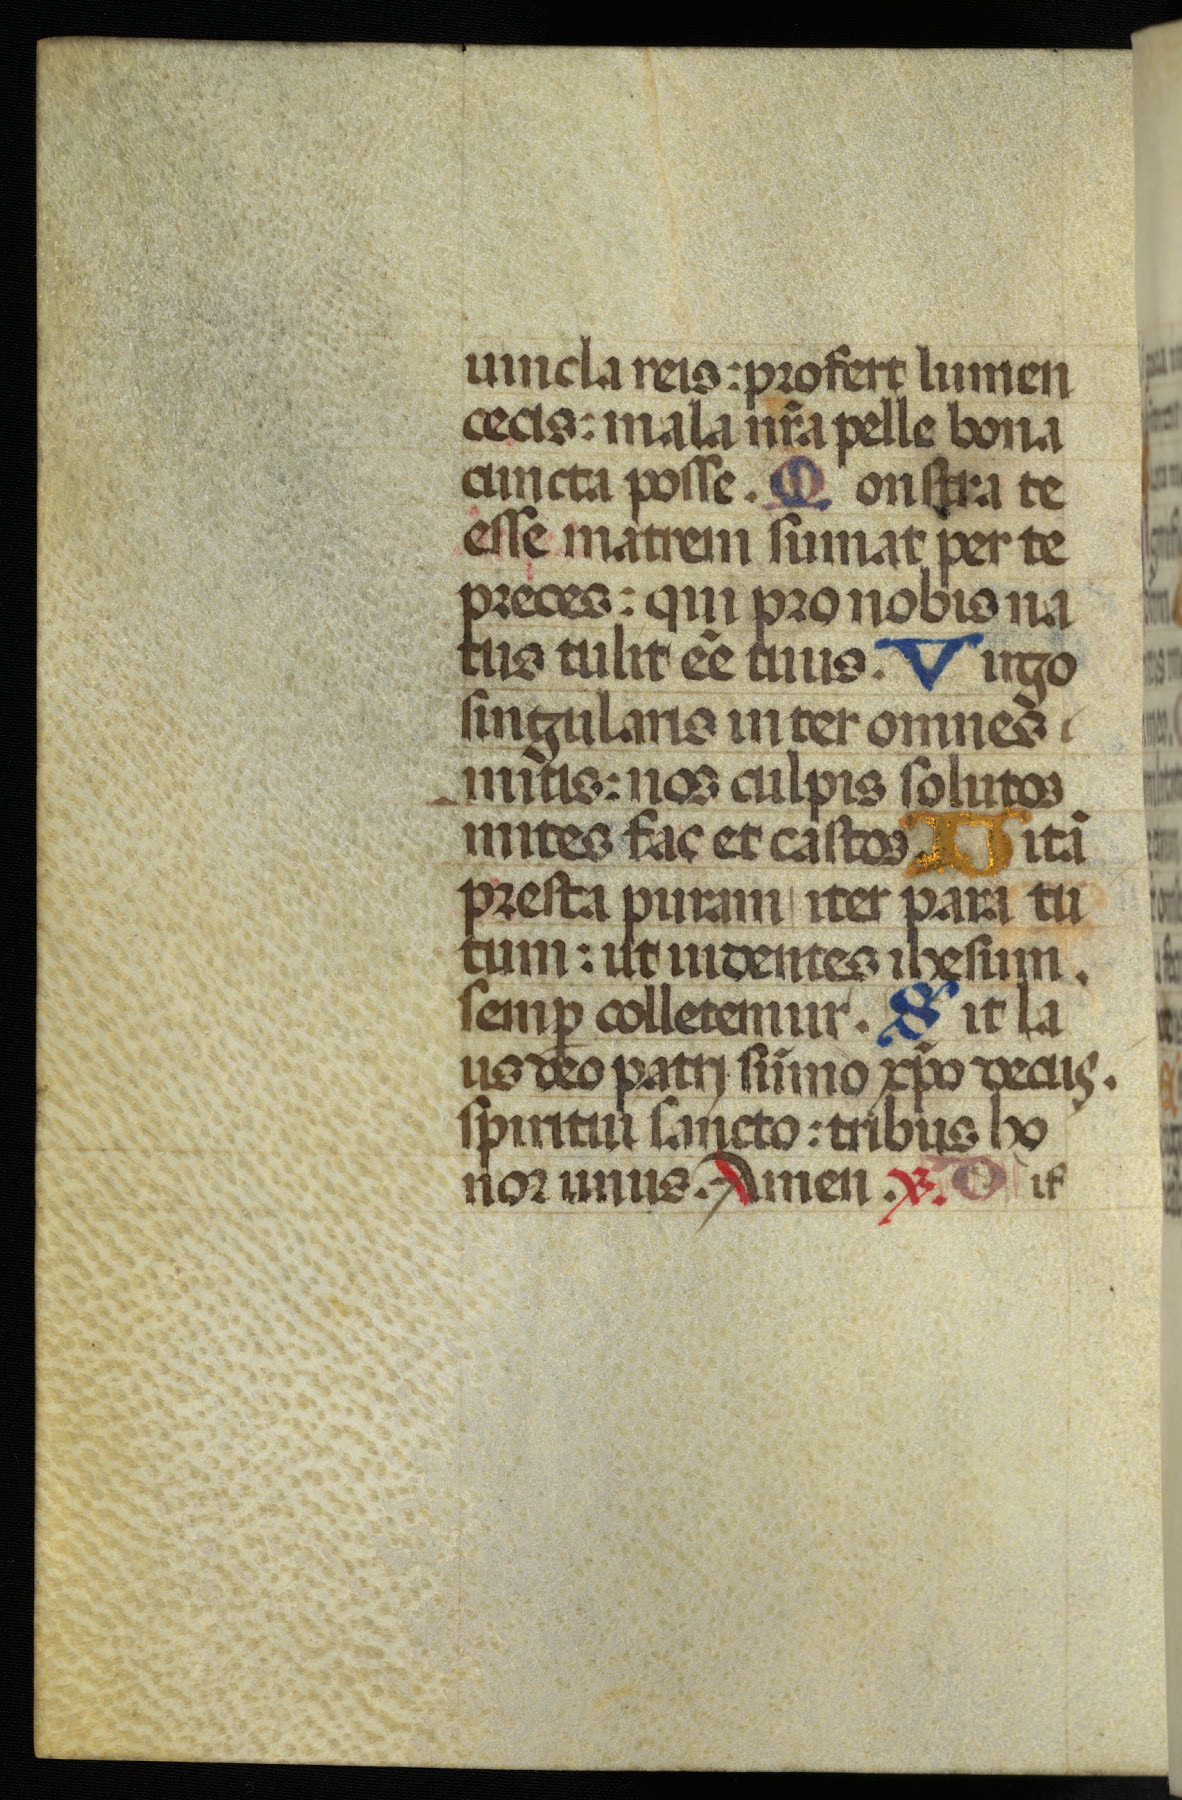 uincla reis: profert lumen
cecis: mala nr̃a pelle bona
cuncta posse. Monstra te
esse matrem sumat per te
preces: qui pro nobis na
tus tulit eẽ tuus. Virgo
singularis inter omnes
mitis: nos culpis solutos
mites fac et castos. Uitã
presta puram iter para tu
tum: ut uidentes ihesum.
semꝑ colletemur. Sit la
us deo patrj sũmo xp̃o decus.
spiritui sancto: tribus ho
nor unus. Amen. ℣. Dif